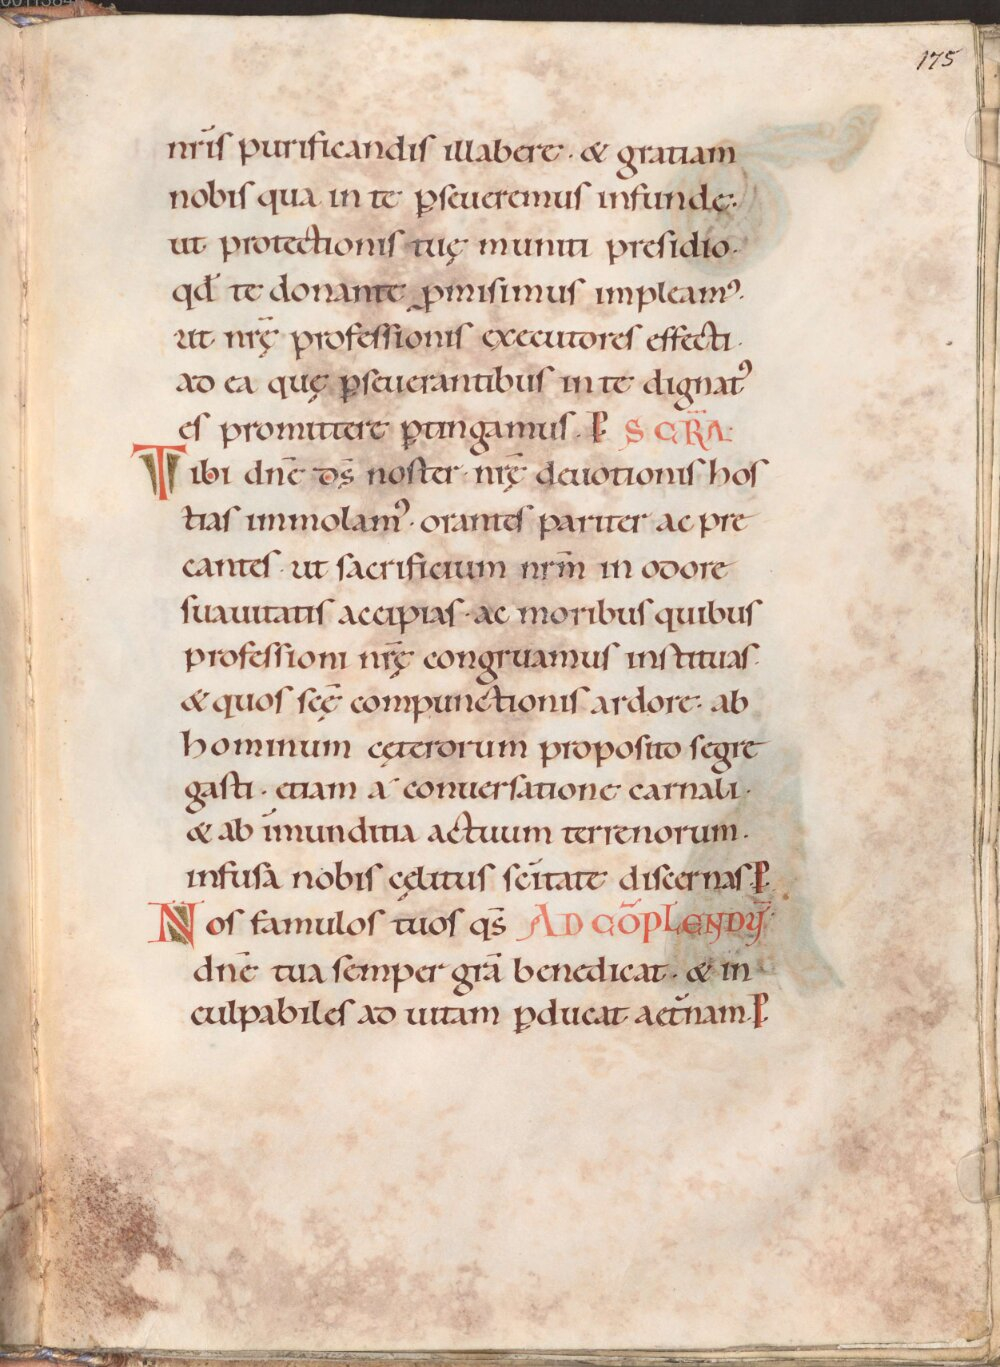 175
nr̄is purificandis illabere · & gratiam
nobis qua in te p̄seueremus infunde·
ut protectionis tuę muniti presidio·
qd̄ te donante p̄misimus impleamꝰ·
ut nr̄ę professionis executores effecti·
ad ea quę p̄seuerantibus in te dignatꝰ
es promittere p̄tingamus · P̄ SCR̄A·
Tibi dn̄e d̄s noster · nr̄ę deuotionis hos
tias immolamꝰ · orantes pariter ac pre
cantes · ut sacrificium nr̄m in odore
suauitatis accipias · ac moribus quibus
professioni nr̄ę congruamus instituas·
& quos sc̄ę compunctionis ardore · ab
hominum cęterorum proposito segre
gasti · etiam a conuersatione carnali ·
& ab īmunditia actuum terrenorum ·
infusa nobis cęlitus sc̄itate discernas· P̄
Nos famulos tuos qs̄ AD CŌPLENDV̄·
dn̄e tua semper grā benedicat · & in
culpabiles ad uitam p̄ducat aet̄nam· P̄